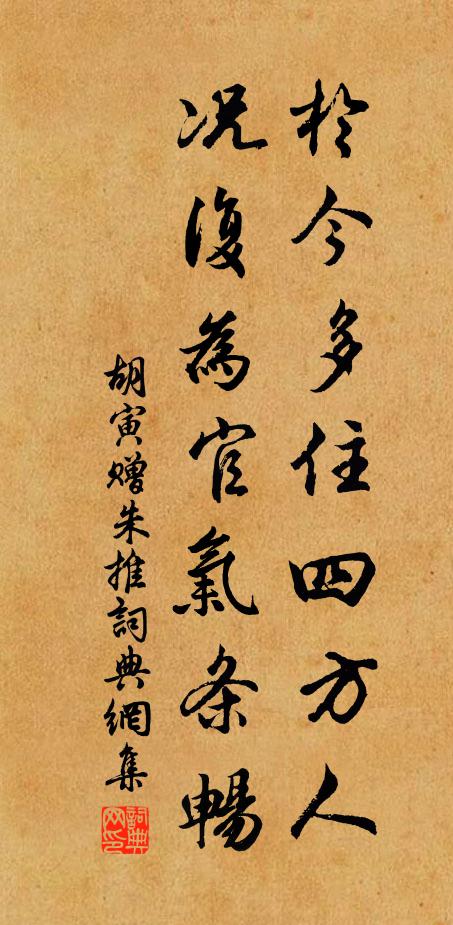 於今多住四方人
况復為官氣条暢
胡寅贈朱推詞典網集
詞典
网印